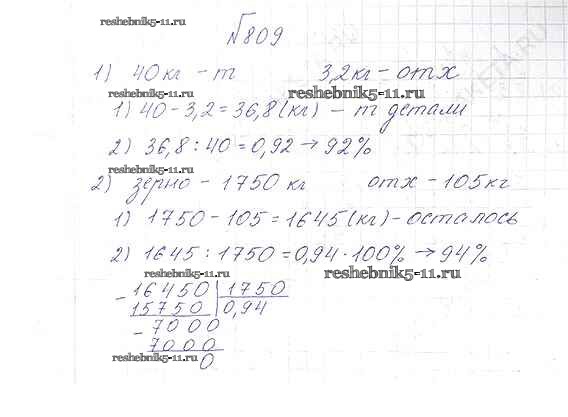 reshebnik5-11.ru
№809
1) 40 кг - m 3,2 кг - отх
reshebnik5-11.ru reshebnik5-11.ru
1) 40 - 3,2 = 36,8 (кг) - m детали
2) 36,8 : 40 = 0,92 → 92%
reshebnik5-11.ru
2) зерно - 1750 кг отх - 105 кг
1) 1750 - 105 = 1645 (кг) - осталось
2) 1645 : 1750 = 0,94 · 100% → 94%
reshebnik5-11.ru reshebnik5-11.ru
- 16450 | 1750
15750 | 0,94
- 7000
7000
reshebnik5-11.ru 0